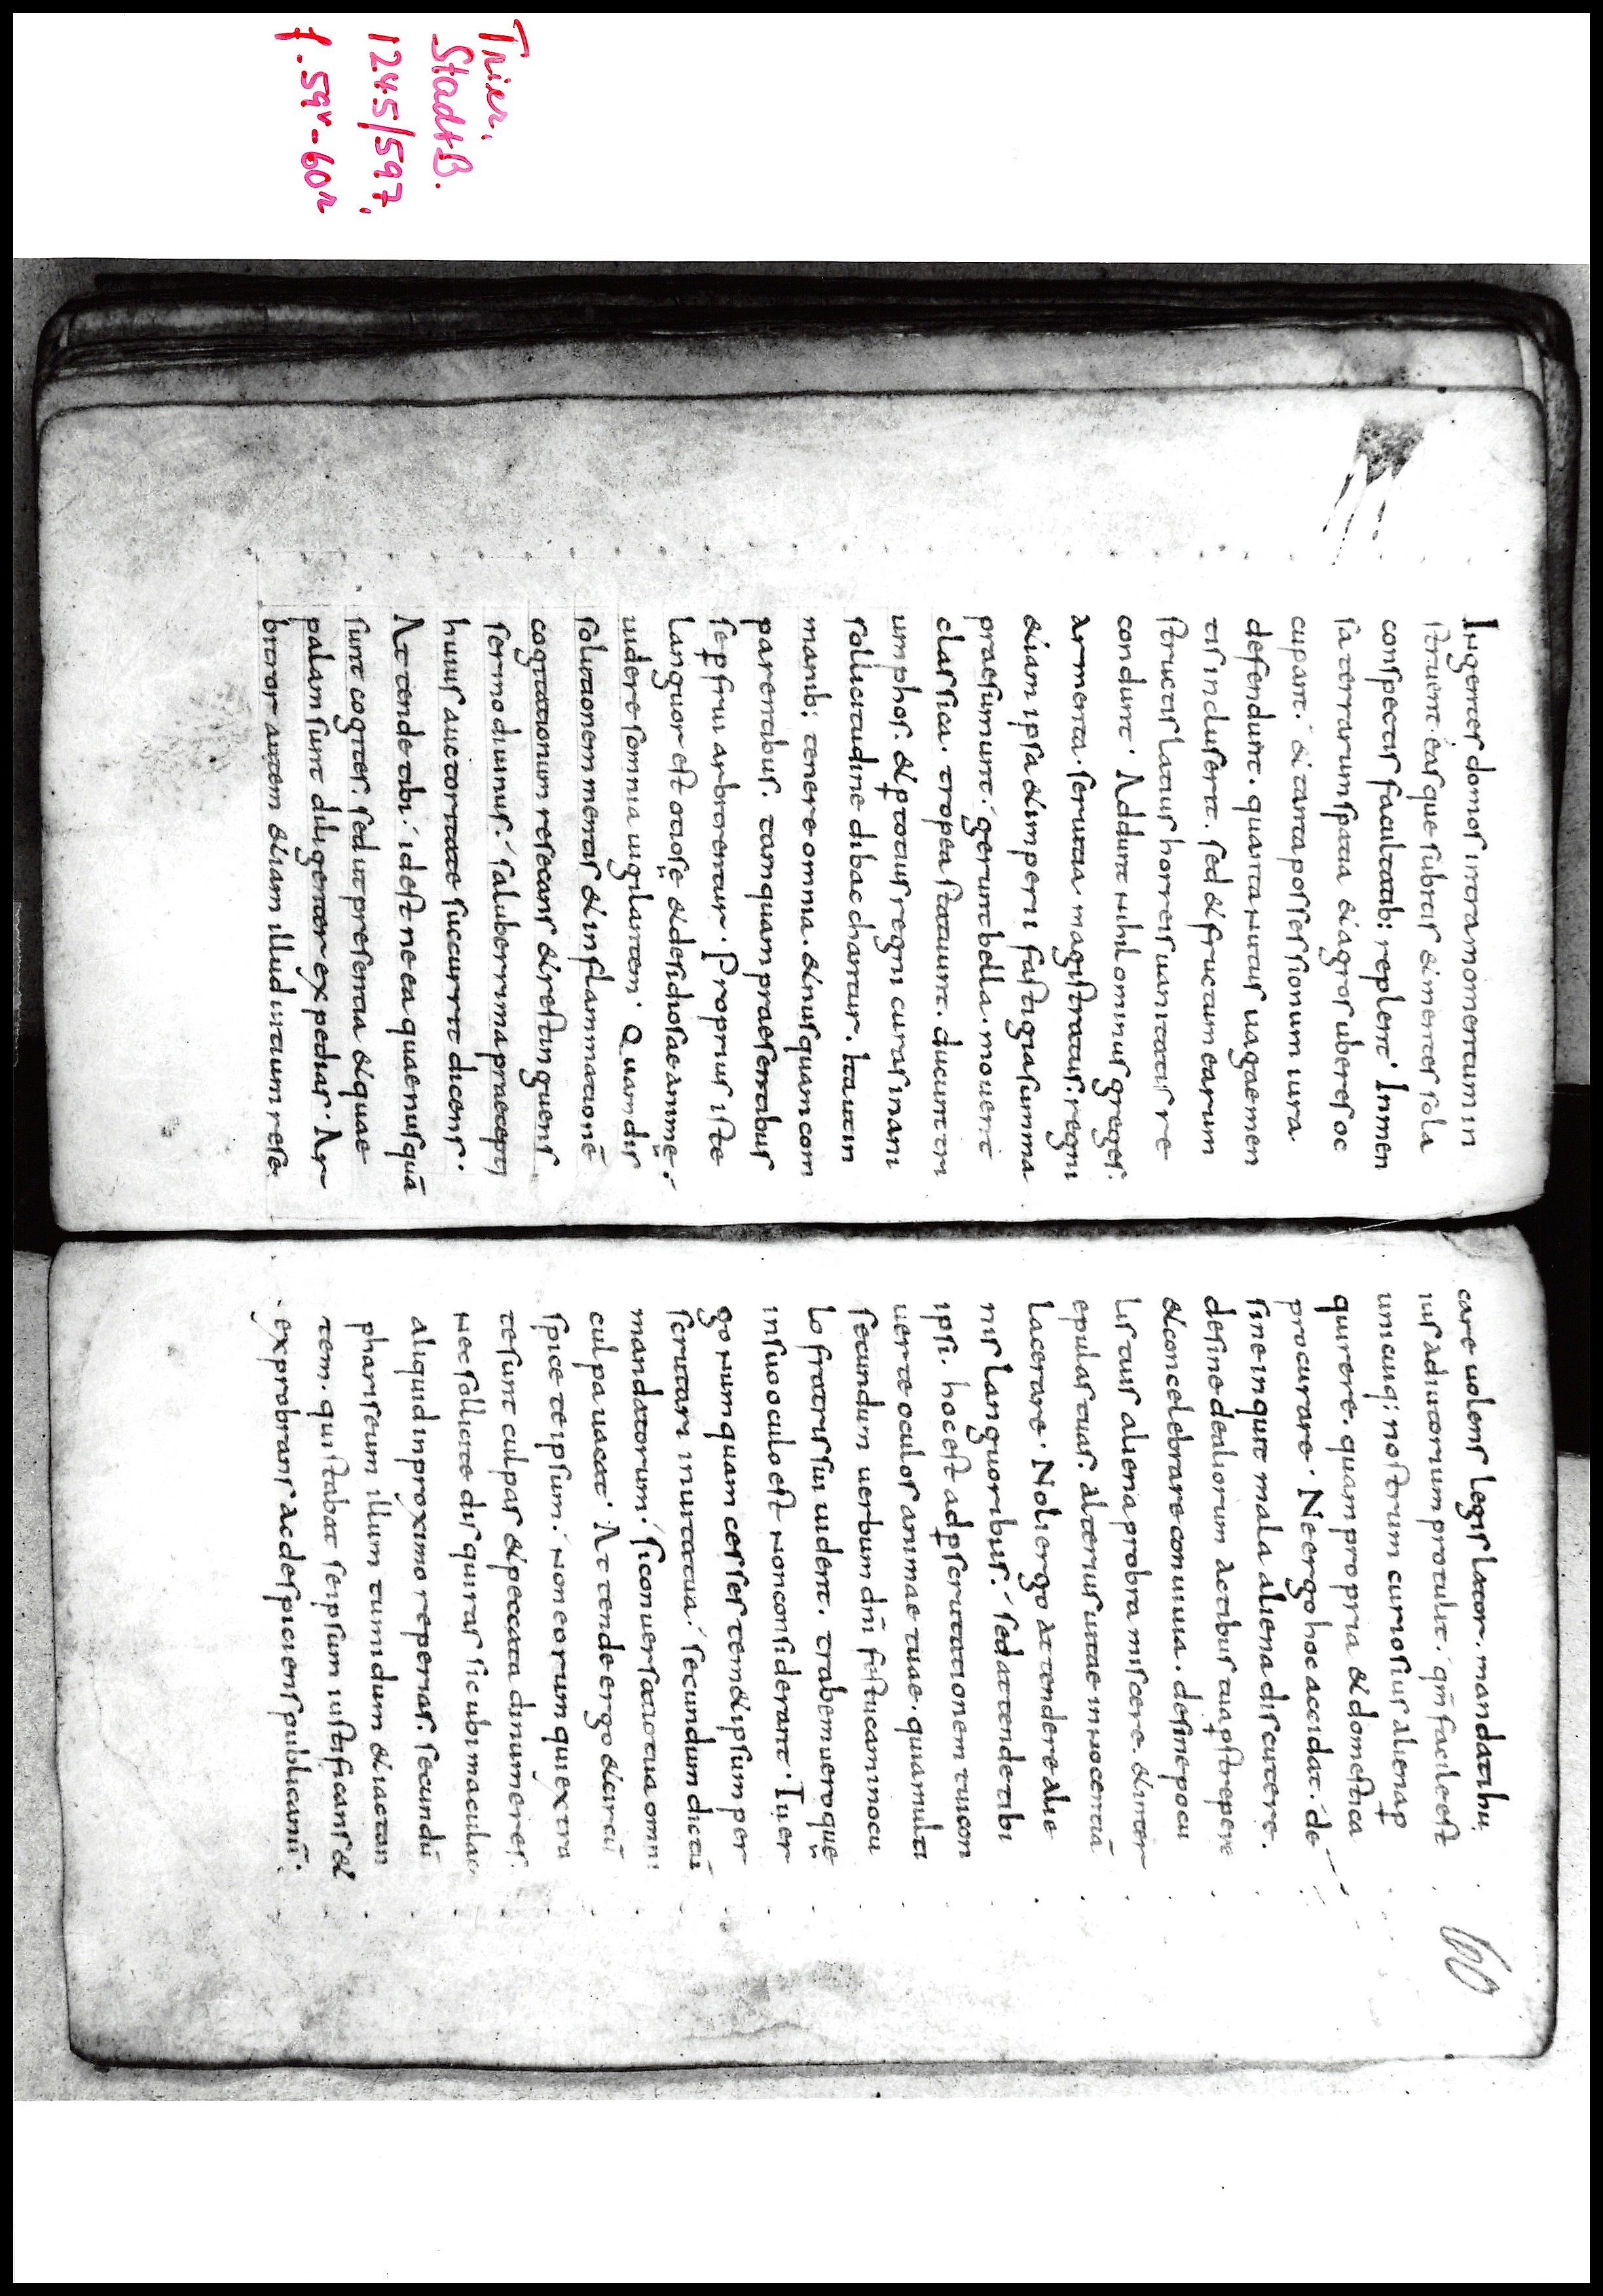 Trier,
StadtB.
1245/597,
f. 59v-60r
Ingentes domos intra momentum in
struent. easque subtis & inertes sola
conspectis facultatib; replent. Inmen
sa terrarum spatia & agros uberes oc
cupant. & tanta possessionum iura
defendunt. quanta nutus uagae men
tis incluserit. sed & fructum earum
structis latius horreis uanitatis re
condunt. Addunt nihilominus greges.
armenta. seruitia. magistratus. regni
&iam ipsa & imperii fastigia summa
praesumunt. gerunt bella. mouent
classica. tropea statuunt. ducunt tri
umphos. & ꝑ totius regni curas inani
sollicitudine dibacchantur. Ita ut in
manib; tenere omnia. & nusquam com
parentibus. tamquam praesentibus
se ꝑfrui arbitrentur. Proprius iste
languor est otiose & desidiosae anime.
uidere somnia uigilantem. Quam dis
solutionem mentis & inflammationē
cogitationum resecans & restinguens
sermo diuinus. saluberrima praecepti
huius auctoritate succurrit dicens.
Attende tibi. id est ne ea quae nusquā
sunt cogites. sed ut presentia & quae
palam sunt diligenter expedias. Ar
bitror autem &iam illud uitium rese
60
care uolens legislator. mandatibu;
ius adiutorium protulit. qm̄ facile est
unicuiq; nostrum curiosius aliena ꝑ
quirere. quam propria & domestica
procurare. Ne ergo hoc accidat. de
sine inquit mala aliena discutere.
desine de aliorum actibus tua ꝑstrepere
& concelebrare conuiuia. desine pocu
lis tuis aliena probra miscere. & inter
epulas tuas. alterius uitae innocentiā
lacerare. Noli ergo attendere alie
nis languoribus. sed attende tibi
ipsi. hoc est ad ꝑscrutationem tui con
uerte oculos animae tuae. quia multi
secundum uerbum dn̄i fistucam in ocu
lo fratris sui uident. trabem uero que
in suo oculo est non considerant. Tu er
go numquam cesses temet ipsum per
scrutari in uita tua. secundum dictū
mandatorum. si conuersatio tua omni
culpa uacat. Attende ergo & circū
spice te ipsum. non eorum qui extra
te sunt culpas & peccata dinumeres.
nec sollicite disquiras sicubi maculas
aliquid in proximo reperias. secundū
phariseum illum tumidum & iactan
tem. qui stabat se ipsum iustificans &
exprobrans ac despiciens publicanū.